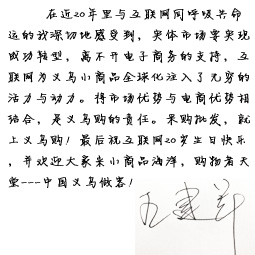 在近20年里与互联网同呼吸共命
运的我深切地感受到，实体市场要实现
成功转型，离不开电子商务的支持，互联
网为义乌小商品全球化注入了无穷的
活力与动力。将市场优势与电商优势相
结合，是义乌购的责任。采购批发，就
上义乌购！最后祝互联网20岁生日快乐
，并欢迎大家来小商品海洋，购物者天
堂---中国义乌做客！